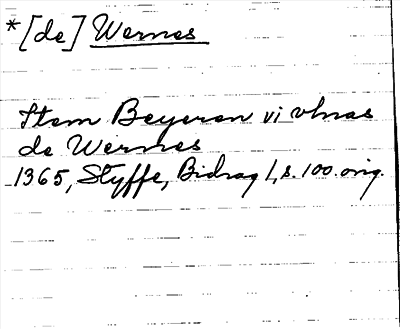 *[de] Wernes
Item Beyeren vi vlnas
de Wernes
1365, Styffe, Bidrag I, s. 100. orig.